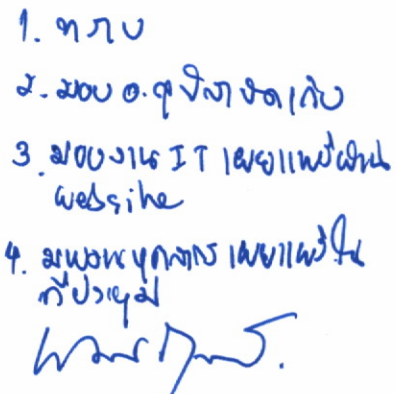 1. ทราบ
2. มอบ อ.สุ จัดเก็บ
3. มอบงาน IT เผยแพร่ผ่าน
website
4. มอบ บุคลากร เผยแพร่ใน
ที่ประชุม